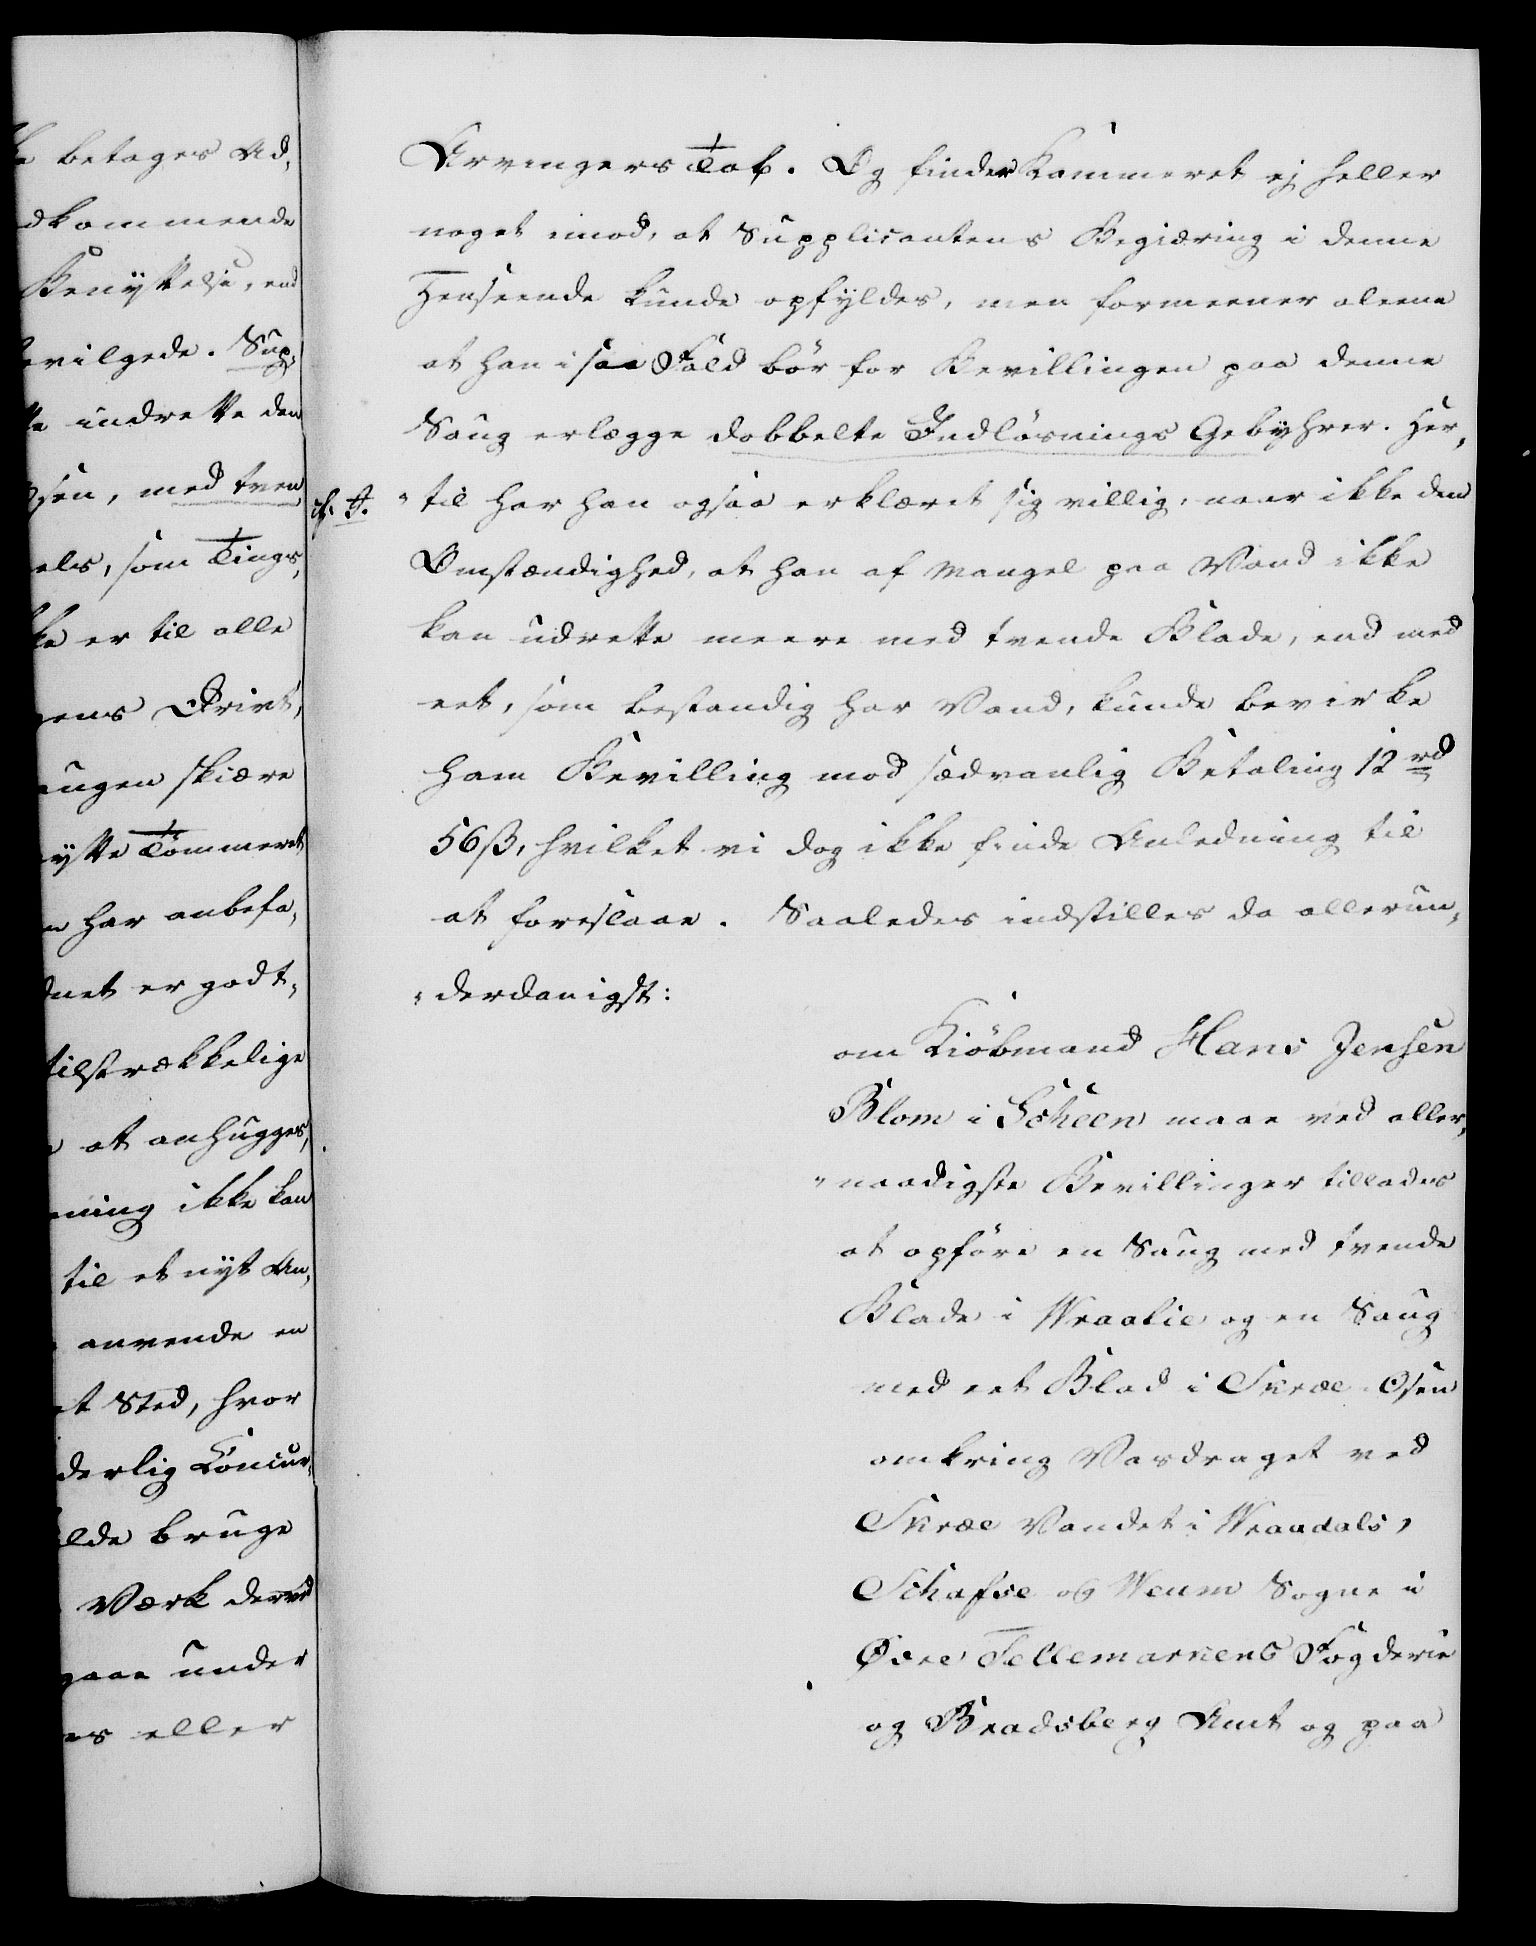 betages Ad,
dkommende
Benyttelse, end
evilgede. Sup,
indrette den
sen, med tven
els, som Tings,
ke er til alle
gens Drivt,
augen skiære
ytte Tømmeret
n har anbefa,
dnet er godt,
tilstrækkelige
at anhugges,
ning ikke kan
til et nyt An,
anvende en
et Sted, hvor
derlig Concur,
lde bruge
Værk derved
gaae under
es eller
Arvingers Tab. Og finder Kammeret ej heller
noget imod, at Supplicantens Begiæring i denne
Henseende kunde opfyldes, men formeener aleene
at han i saa Fald bör for Bevillingen paa denne
Saug erlægge dobbelte Indlösnings Gebyhrer. Her,
"til har han ogsaa erklæret sig villig, naar ikke den
Omstændighed, at han af Mangel paa Vand ikke
kan udrette meere med tvende Blade, end med
eet, som bestandig har Vand, kunde bevirke
ham Bevilling mod sædvanlig Betaling 12 rd
56ß, hvilket vi dog ikke finde Anledning til
at foreslaae. Saaledes indstilles da allerun,
"derdanigst:
om Kiöbmand Hans Jensen
Blom i Scheen maae ved aller,
"naadigste Bevillinger tillades
at opföre en Saug med tvende
Blade i Wraalie og en Saug
med eet Blad i Skræe-Osen
omkring Vasdraget ved
Skræe Vandet i Wraadals,
Schafse og Weum Sogne i
Øvre Tellemarkens Fogderie
og Bradsberg Amt og paa